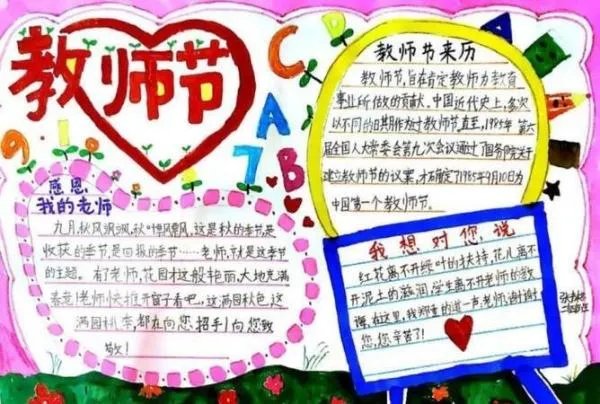 教师节
C
D
A
7
B
9
1
6
教师节来历
教师节,旨在肯定教师为教育
事业所做的贡献,中国近代史上,多次
以不同的日期作为过教师节,直至,1985年第六
届全国人大常委会第九次会议通过了国务院关于
建立教师节的议案,才确定了1985年9月10日为
中国第一个教师节。
感恩
我的老师
九月,秋风飒飒,秋叶飘飘,这是秋的季节,是
收获的季节,是回报的季节……老师,就是这季节
的主题。有了老师,花园才这般艳丽,大地充满
春意!老师快推开窗子看吧,这满园秋色,这
满园桃李,都在向您招手!向您致
敬!
我想对您说
红花离不开绿叶的扶持,花儿离不
开泥土的滋润,学生离不开老师的教
诲,在这里,我郑重的道一声:老师,谢谢
您,您辛苦了!